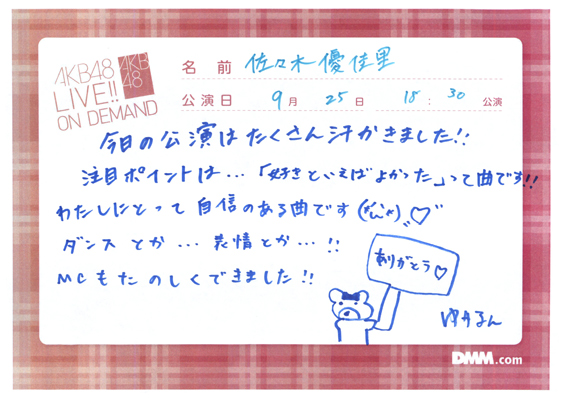 AKB48
LIVE!!
ON DEMAND
AKB
48
名前 佐々木優佳里
公演日 9月 25日 18:30 公演
今日の公演はたくさん汗かきました!!
注目ポイントは…「好きといえばよかった」って曲です!!
わたしにとって自信のある曲です
ダンスとか…表情とか…!!
MCもたのしくできました!!
ありがとう♡
ゆかるん
DMM.com